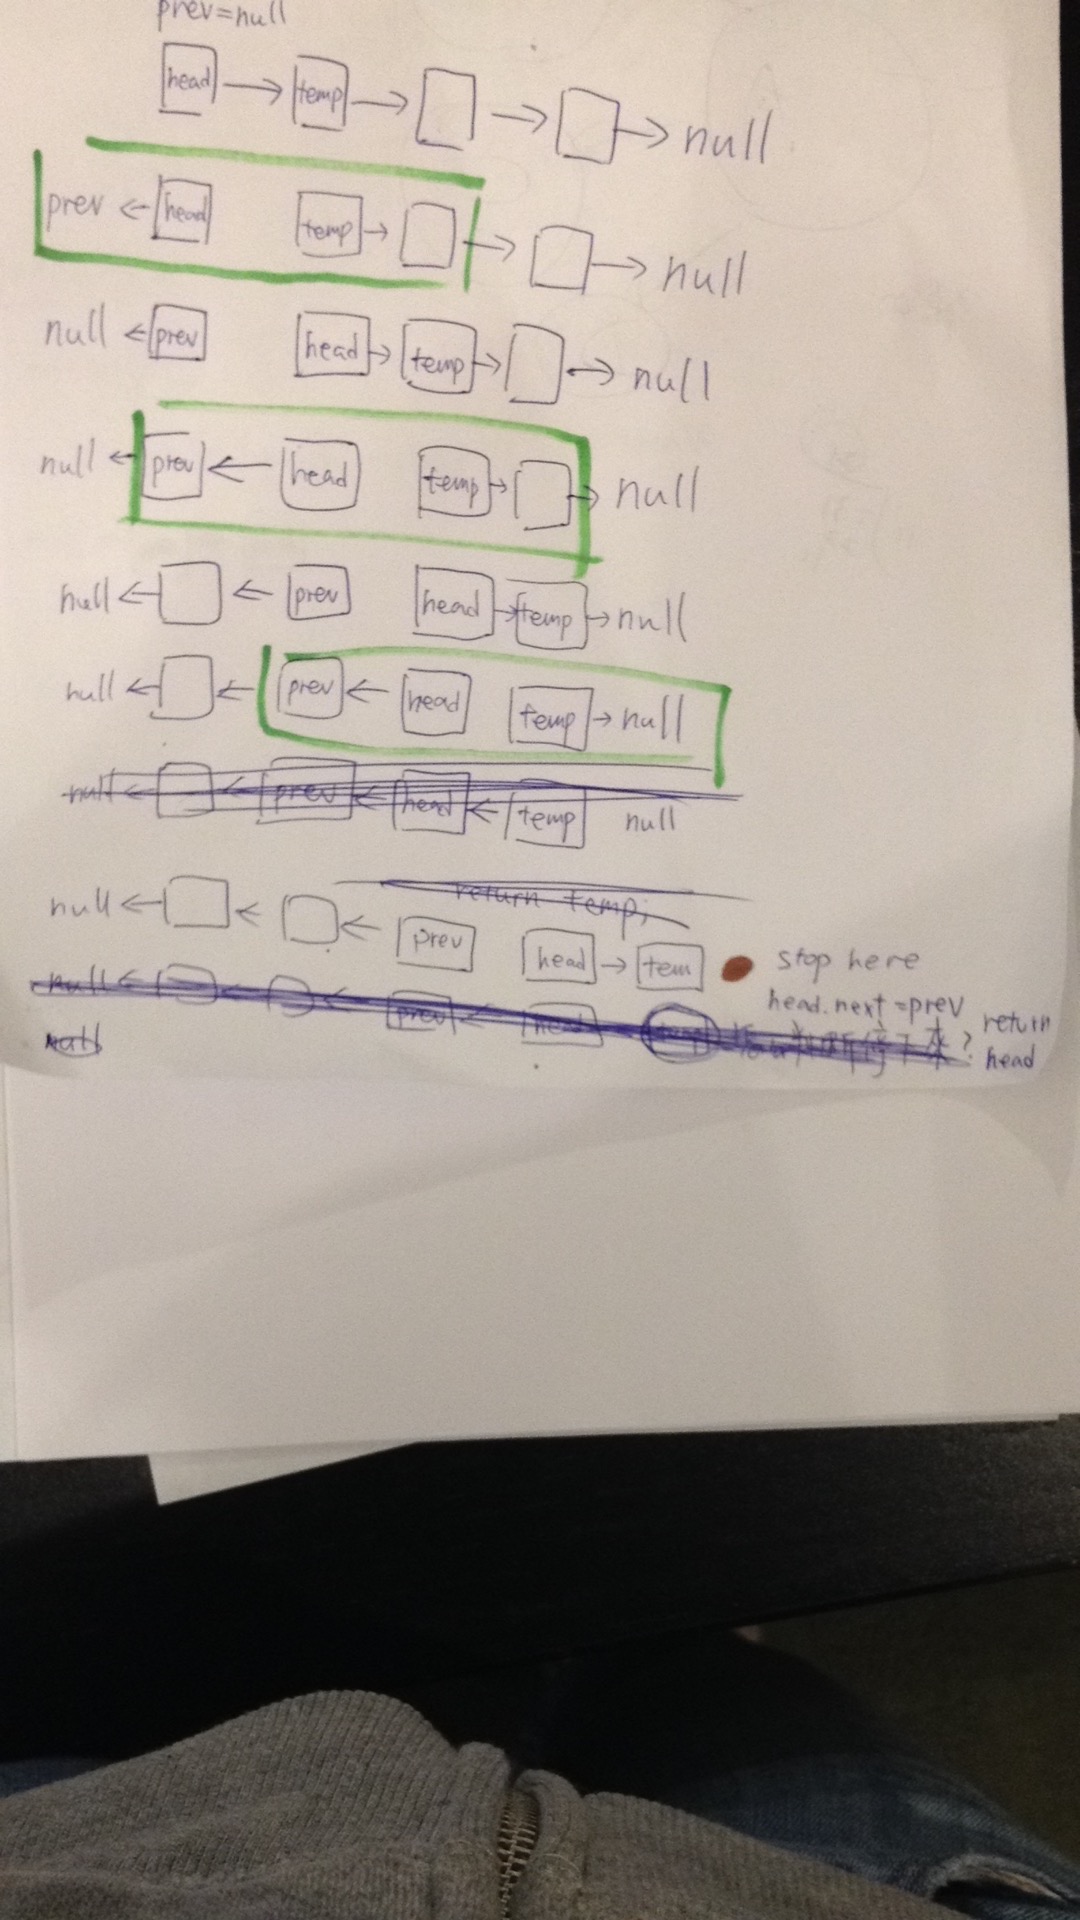 prev=null
head → temp → → → null
prev ← head temp → → → null
null ← prev head → temp → → null
null ← prev ← head temp → → null
null ← ← prev head → temp → null
null ← ← prev ← head temp → null
null ← ← prev ← head ← temp null
return temp;
null ← ← ← prev head → tem stop here
head.next = prev
null ← ← ← prev ← head 判斷停下來? return
head